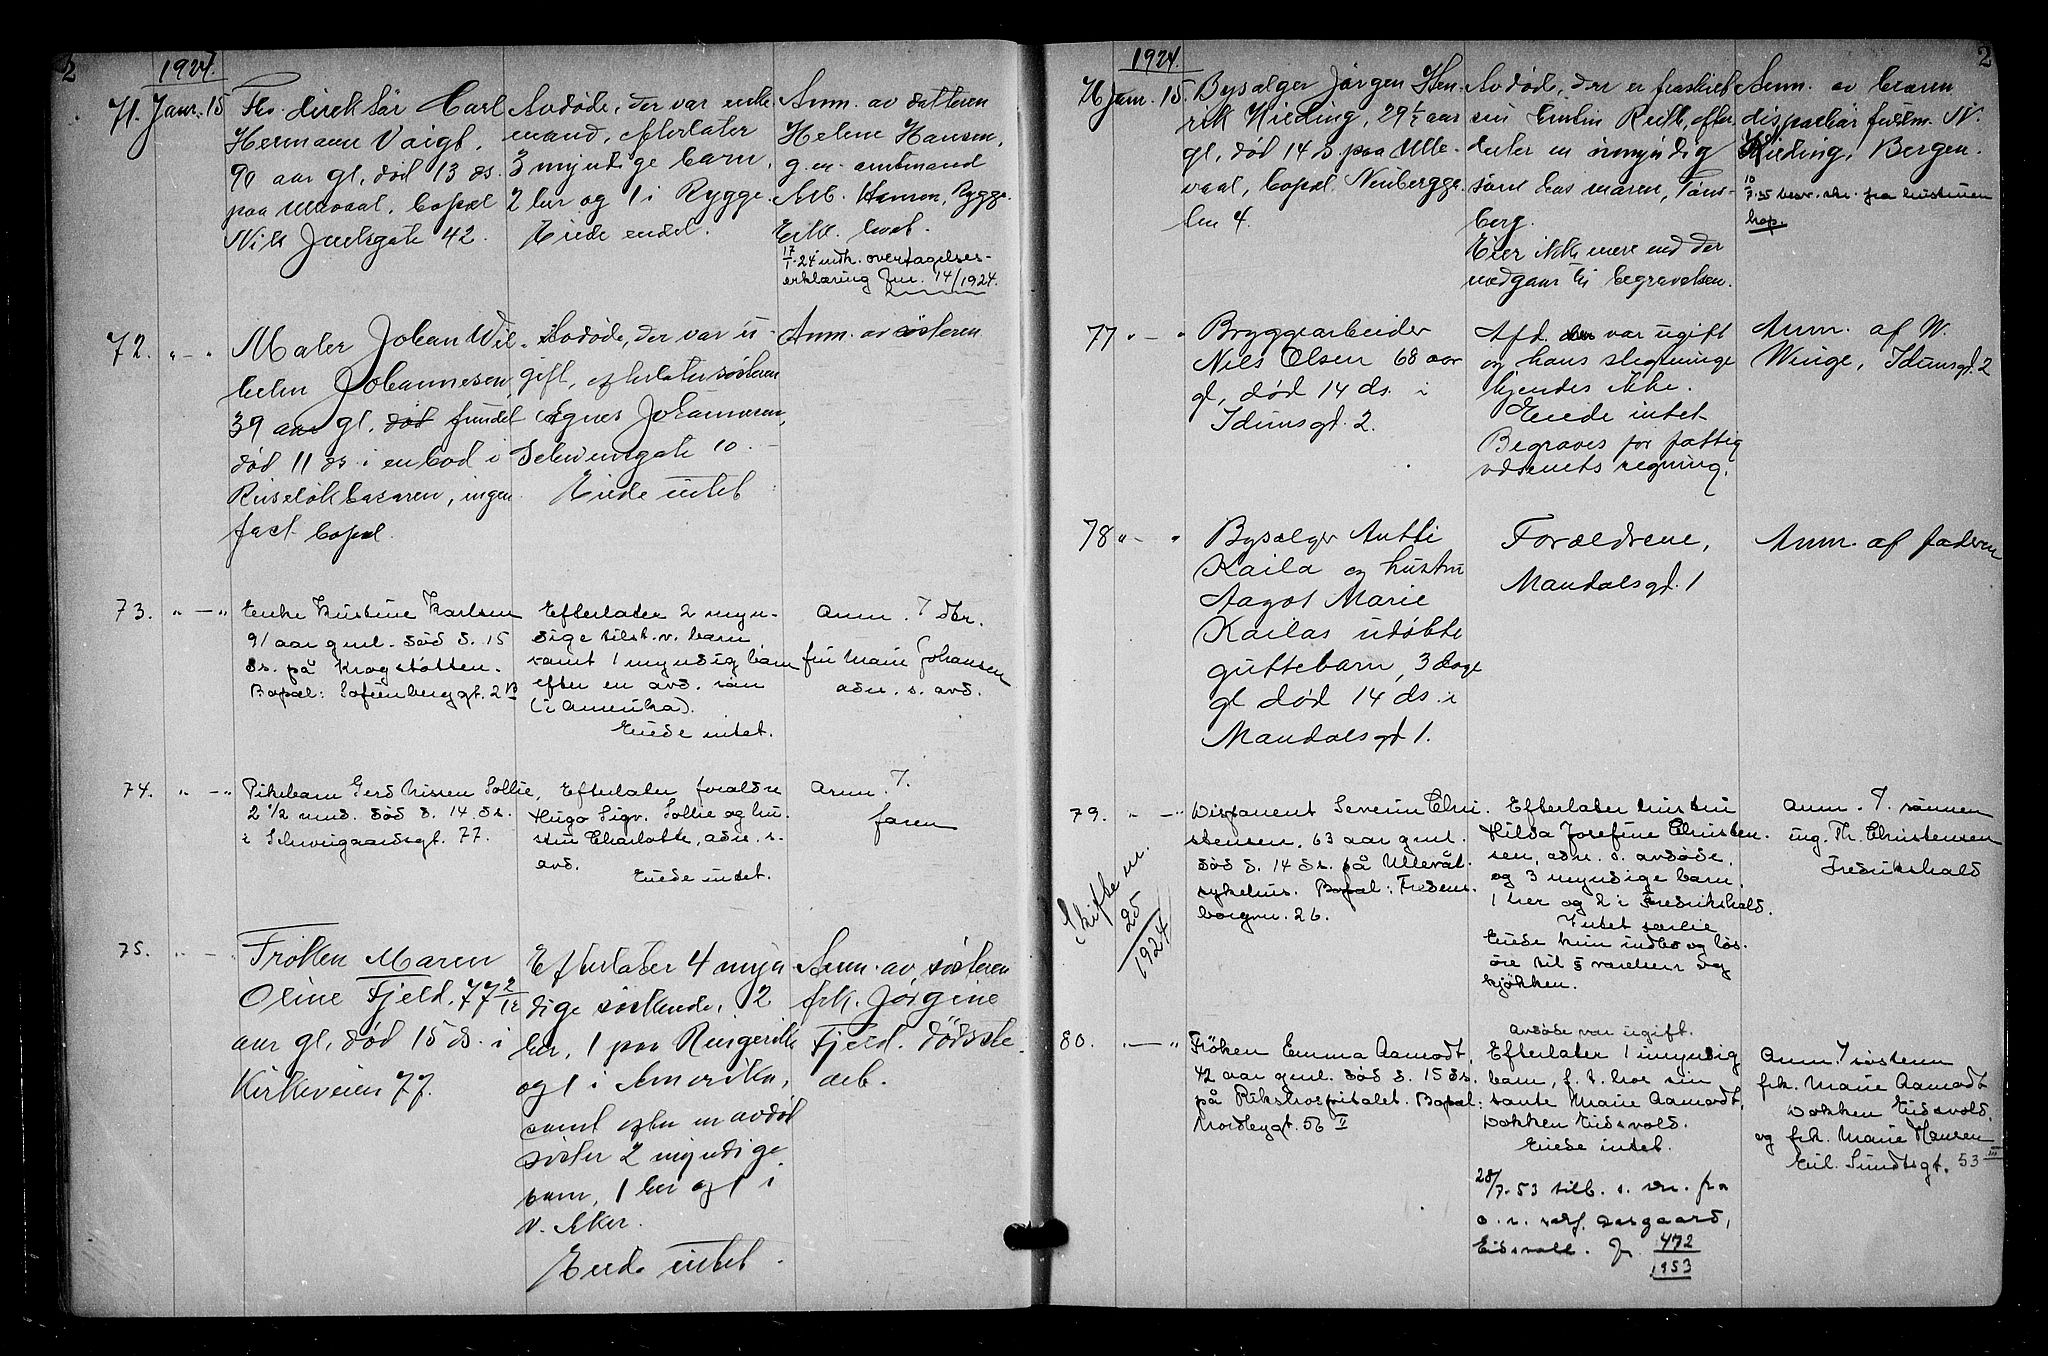 2
1924.
71. Janr. 15
Fhv. direktør Carl
Hermann Voigt,
90 aar gl, død 13 ds.
paa Ullevaal, bopæl
Nils Juelsgate 42.
Avdøde, der var enke
mand, efterlater
3 myndige barn,
2 her og 1 i Rygge.
Eiede endel.
Anm. av datteren
Helene Hansen,
g. m. amtmand
Hansen, Rygge.
17/1-24 indk. overtagelses-
erklæring Jnr. 14/1924.
72. " - "
Maler Johan Wil-
helm Johannesen,
39 aar gl. død fundet
død 11 ds. i en bod i
Ruseløkbasaren, ingen
fast bopæl.
Avdøde, der var u-
gift, efterlater søsteren
Agnes Johannesen,
Schwensgate 10.
Eiede intet
Anm. av søsteren
73. " - "
Enke Kristine Karlsen
91 aar gml. død d. 15
ds. på Krogstøtten.
Bopæl: Sofienberggt. 2 B
Efterlater 2 myn-
dige tilst. v. barn
samt 1 myndig barn
efter en avd. søn
(i Amerika).
Eiede intet.
Anm. 7 dtr.
fru Marie Johansen
adr. s. avd.
74. " - "
Pikebarn Gerd Nissen Sollie,
2 1/2 mnd. død d. 14. ds.
i Schweigaardsgt. 77.
Efterlater forældre
Hugo Sigv. Sollie og hu-
stru Charlotte, adr. s.
avd.
Eiede intet.
Anm. 7.
faren
75. " - "
Frøken Maren
Oline Fjeld, 77 2/12
aar gl, død 15 ds. i
Kirkeveien 77.
Efterlater 4 myn
dige søskende, 2
her, 1 paa Ringerike
og 1 i Amerika,
samt efter en avdød
søster 2 myndige
barn, 1 her og 1 i
V. Aker.
Eiede intet.
Anm. av søsteren
frk. Jørgine
Fjeld. dødsste-
det.
2
1924.
76 Janr. 15.
Bysælger Jørgen Hen-
rik Wieding, 29 1/2 aar
gl, død 14 ds. paa Ulle-
vaal, bopæl Neubergga-
ten 4.
Avdød, der er fraskilt
sin hustru Ruth, efter-
later en umyndig
søn hos moren, Tøns-
berg.
Eier ikke mere end der
medgaar til begravelsen.
Anm. av broren
disponent fuldm. N.
Wieding, Bergen.
fra hustruen
77 " - "
Bryggearbeider
Niels Olsen 68 aar
gl, død 14 ds. i
Idunsgd. 2.
Afd. var ugift
og hans slegtninge
kjendes ikke.
Eiede intet
Begraves for fattig
væsenets regning.
Anm. af W.
Winge, Idunsgd. 2
78 " - "
Bysælger Antti
Kaila og hustru
Aagot Marie
Kailas udøbte
guttebarn, 3 dage
gl død 14 ds. i
Mandalsgd. 1.
Forældrene,
Mandalsgd. 1
Anm. af faderen
79. " - "
Skifte nr.
25
1924
Disponent Severin Chri-
stensen, 63 aar gml.
død d. 14 ds. på Ullevål
sykehus. Bopæl: Fredens-
borgvn. 26.
Efterlater hustru
Hilda Josefine Christen-
sen, adr. s. avdøde,
og 3 myndige barn,
1 her og 2 i Fredrikshald.
Intet særeie
Eiede kun indbo og løs-
øre til 5 værelser og
kjøkken.
Anm. 7. sønnen
ing. Th. Christensen
Fredrikshald
80. " - "
Frøken Emma Aamodt,
42 aar gml. død d. 15 ds.
på Rikshospitalet. Bopæl:
Nordbygt. 56 II
Avdøde var ugift.
Efterlater 1 umyndig
barn, f. t. hos sin
tante Marie Aamodt,
Dokken Eidsvold.
Eiede intet.
28/7-53 tilb. s. skr. fra
o. r. sakf. Aasgaard,
Eidsvoll. Jr. 472
1953
Anm. 7 søsteren
frk. Marie Aamodt
Dokken Eidsvold.
og frk. Marie Hansen
Eil. Sundtsgt. 53 III